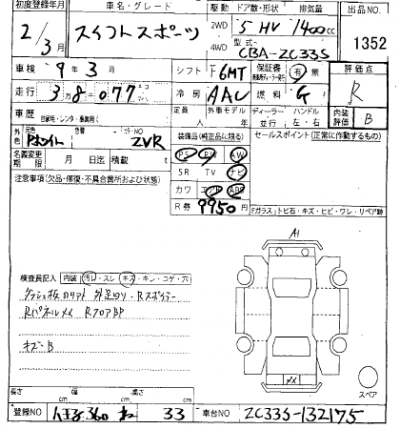 初度登録年月 車名・グレード 駆動 ドア数・形状 排気量 出品NO.
2/3月 スイフトスポーツ 2WD 4WD 5 HV 1400cc
型式 CBA-ZC33S 1352
車検 9年3月 シフト F6MT 保証書 有 無 評価点
走行 38,077 冷房 AAC 燃料 G R
車歴 自家用・レンタ・ 定員 人 外車モデル 年 ディーラー 並行 ハンドル 左・右 内装評価 B
外色 元色 Pホワイト 色替 カラーNO ZVR 装備品(純正品に限る) セールスポイント(正常に作動するもの)
名義変更期限 月 日迄 積載 t PS PW AW
SR TV ナビ
注意事項(欠品・修復・不具合箇所および状態) カワ エアB ABS
R券 9950円 Fガラス トビ石・キズ・ヒビ・ワレ・リペア跡
A1
検査員記入 内装 汚レ・スレ キズ・キレ・コゲ・穴
RパネルXX RフロアBP
キズ・B
XX
スペア
長さ cm 幅 cm 高さ cm
登録NO 33 車台NO ZC33S-132175